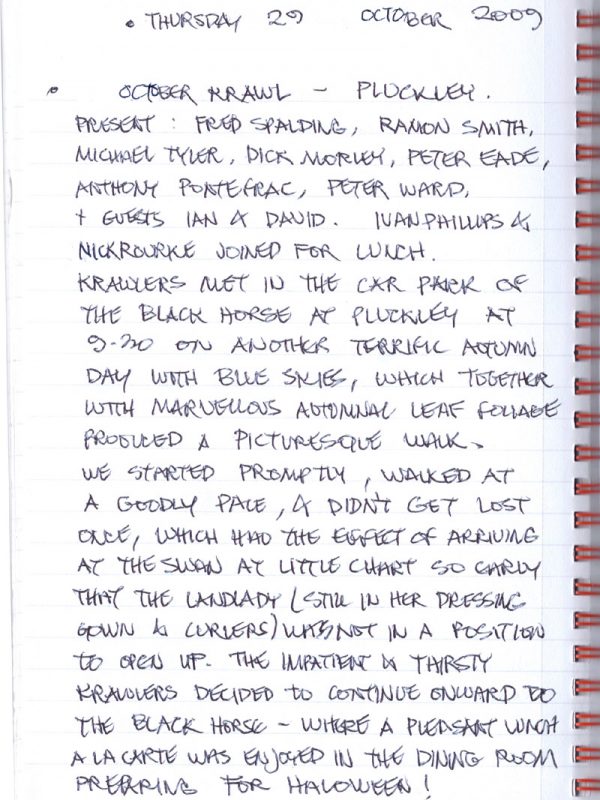 • THURSDAY 29 OCTOBER 2009
• OCTOBER KRAWL – PLUCKLEY.
PRESENT : FRED SPALDING, RAMON SMITH,
MICHAEL TYLER, DICK MORLEY, PETER EADE,
ANTHONY PONTEFRAC, PETER WARD,
+ GUESTS IAN & DAVID. IVAN PHILLIPS &
NICK ROURKE JOINED FOR LUNCH.
KRAWLERS MET IN THE CAR PARK OF
THE BLACK HORSE AT PLUCKLEY AT
9-30 ON ANOTHER TERRIFIC AUTUMN
DAY WITH BLUE SKIES, WHICH TOGETHER
WITH MARVELLOUS AUTUMNAL LEAF FOLIAGE
PRODUCED A PICTURESQUE WALK.
WE STARTED PROMPTLY, WALKED AT
A GOODLY PACE, & DIDN'T GET LOST
ONCE, WHICH HAD THE EFFECT OF ARRIVING
AT THE SWAN AT LITTLE CHART SO EARLY
THAT THE LANDLADY (STILL IN HER DRESSING
GOWN & CURLERS) WAS NOT IN A POSITION
TO OPEN UP. THE IMPATIENT & THIRSTY
KRAWLERS DECIDED TO CONTINUE ONWARD TO
THE BLACK HORSE – WHERE A PLEASANT LUNCH
A LA CARTE WAS ENJOYED IN THE DINING ROOM
PREPARING FOR HALOWEEN!